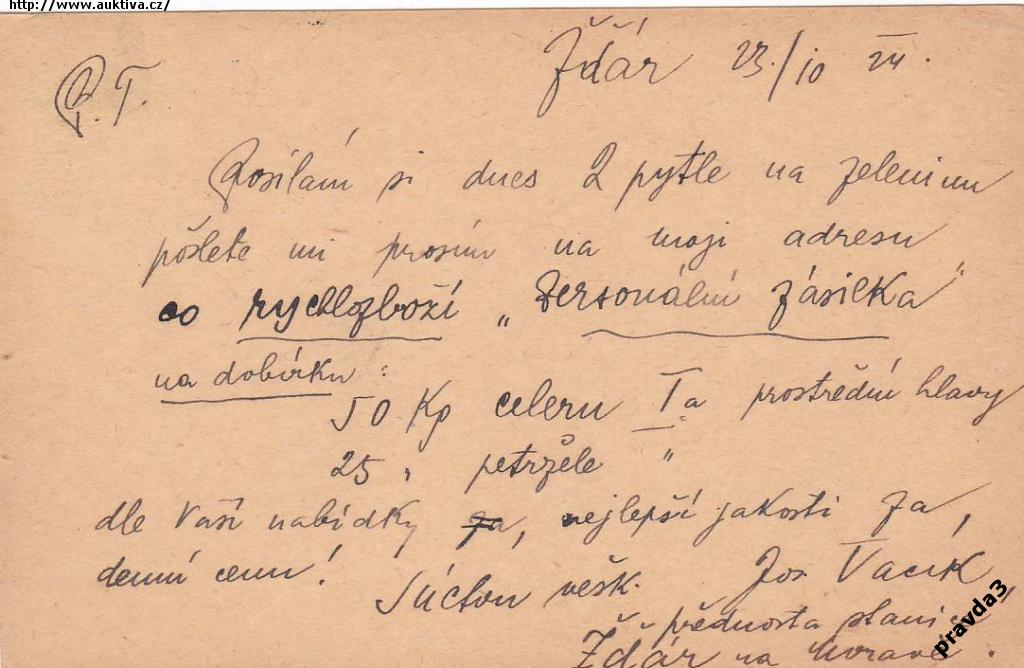 http://www.auktiva.cz/
Žďár 23./10 24.
P.T.
Posílám si dnes 2 pytle na zeleninu
pošlete mi prosím na moji adresu
co rychlozboží „Personální zásilka"
na dobírku:
50 Kg celeru Ia prostřední hlavy
25 " petržele "
dle Vaší nabídky za, nejlepší jakosti za,
denní cenu!
S úctou vešk. Jos. Vacík
přednosta stanice
Žďár na Moravě.
pravda3